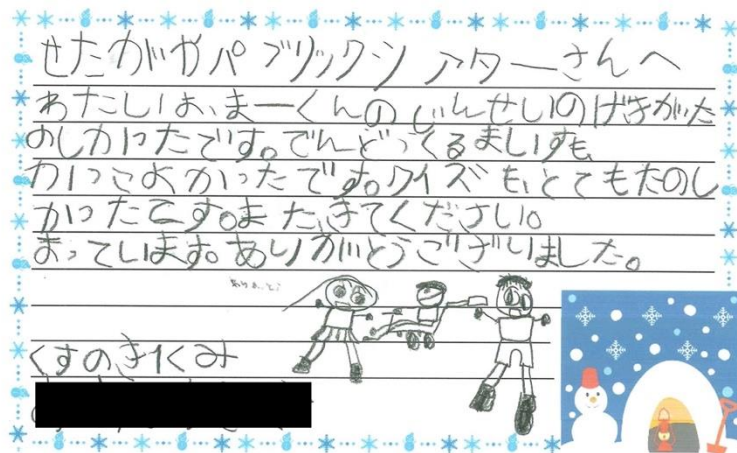 せたがやパブリックシアターさんへ
わたしは、まーくんのじんせいのげきがた
のしかったです。でんどうくるまいすも
かっこよかったです。クイズも、とてもたのし
かったです。また、きてください。
まっています。ありがとうございました。
ありがとう
くすのき1くみ